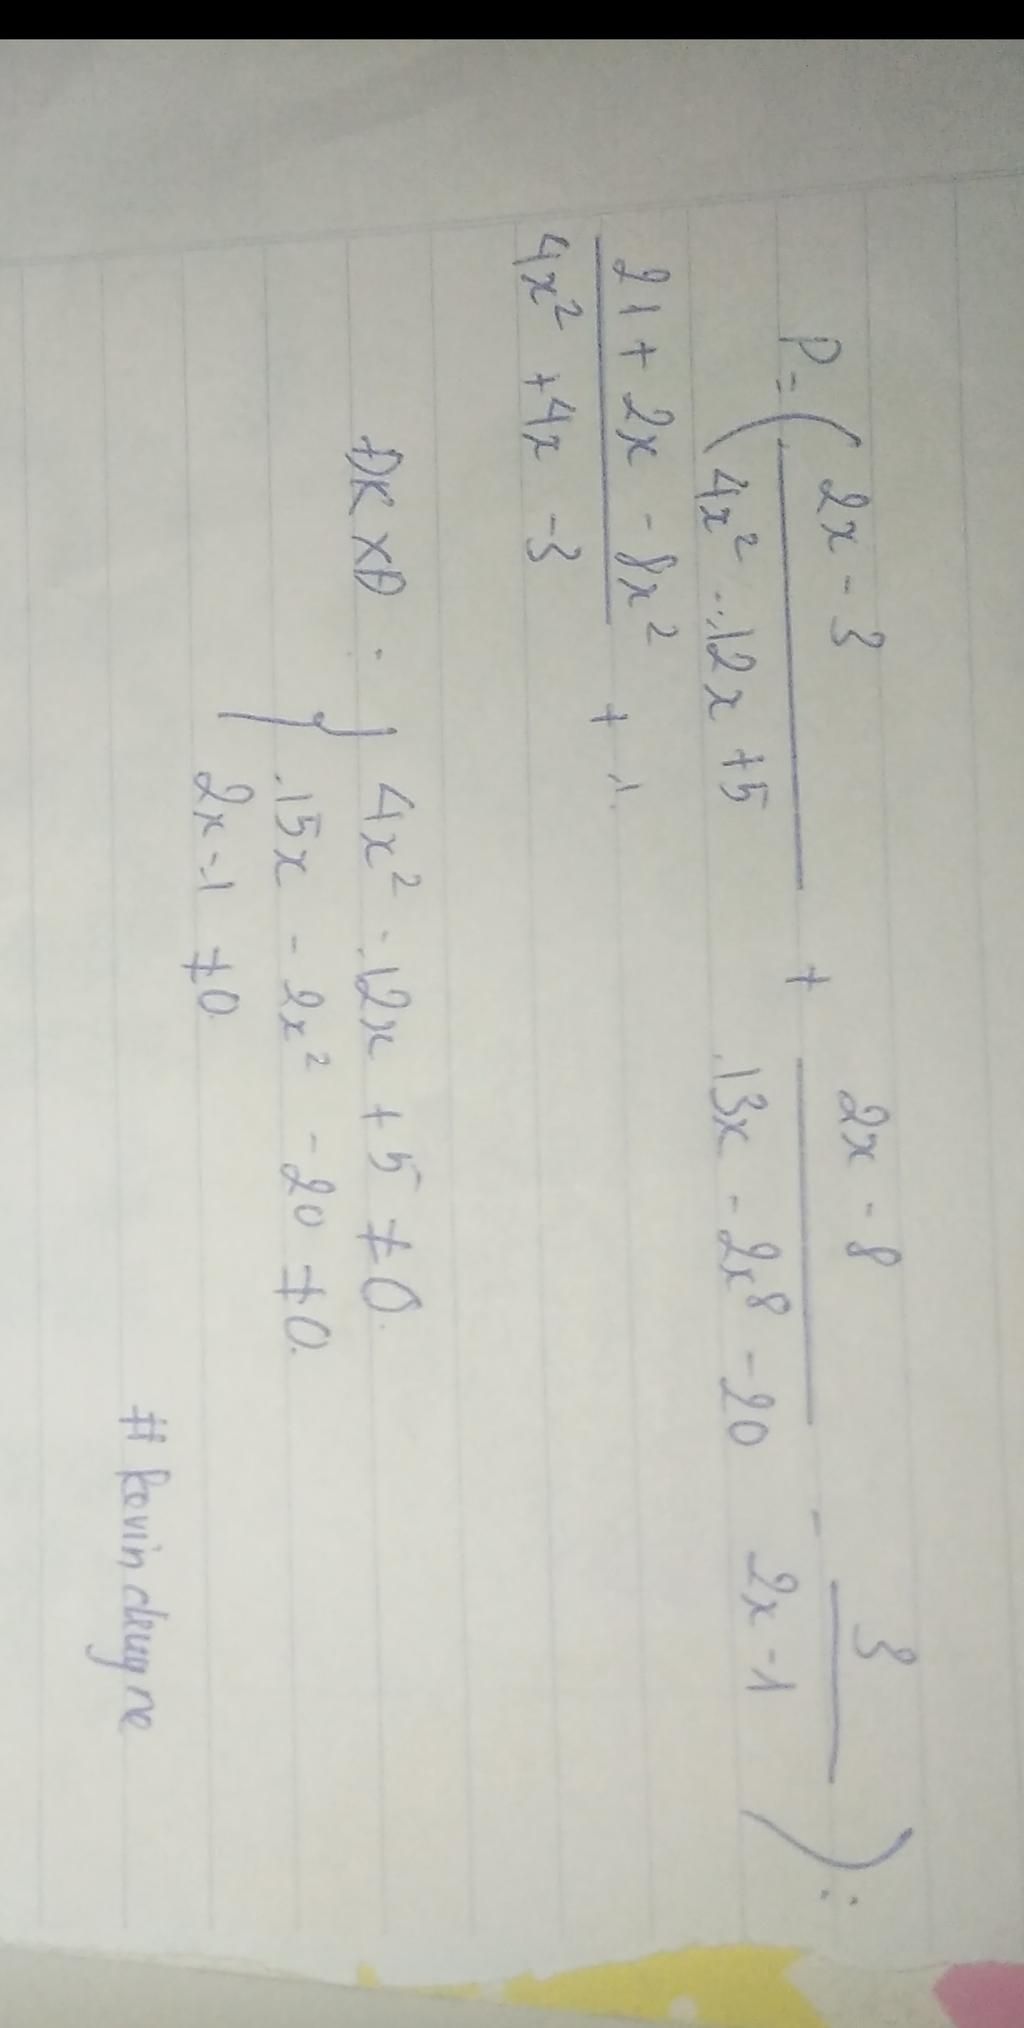 P = ( (2x - 3)/(4x² - 12x + 5) + (2x - 8)/(13x - 2x⁸ - 20) - 3/(2x - 1) ) :
(21 + 2x - 8x²)/(4x² + 4x - 3) + 1
ĐKXĐ : { 4x² - 12x + 5 ≠ 0
15x - 2x² - 20 ≠ 0
2x - 1 ≠ 0
# kevin